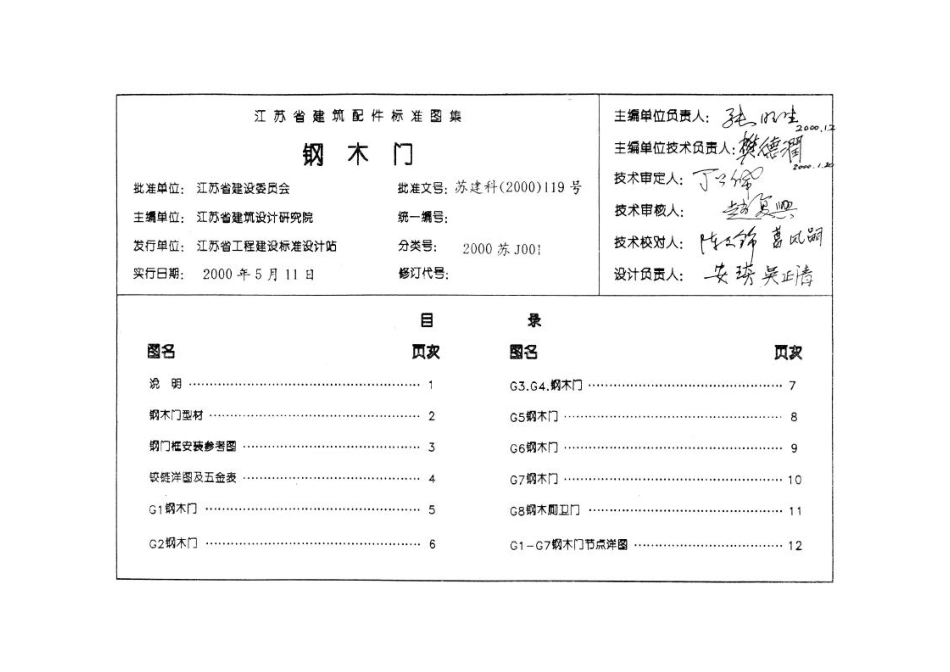 江苏省建筑配件标准图集
钢木门
批准单位: 江苏省建设委员会 批准文号: 苏建科(2000)119号
主编单位: 江苏省建筑设计研究院 统一编号:
发行单位: 江苏省工程建设标准设计站 分类号: 2000苏J001
实行日期: 2000年5月11日 修订代号:
主编单位负责人:
2000.1.2
主编单位技术负责人: 樊德润
2000.1.20
技术审定人:
技术审核人:
技术校对人:
设计负责人: 安琦 吴正清
目 录
图名 页次
说 明 1
钢木门型材 2
钢门框安装参考图 3
铰链洋图及五金表 4
G1钢木门 5
G2钢木门 6
图名 页次
G3.G4.钢木门 7
G5钢木门 8
G6钢木门 9
G7钢木门 10
G8钢木厕卫门 11
G1-G7钢木门节点洋图 12